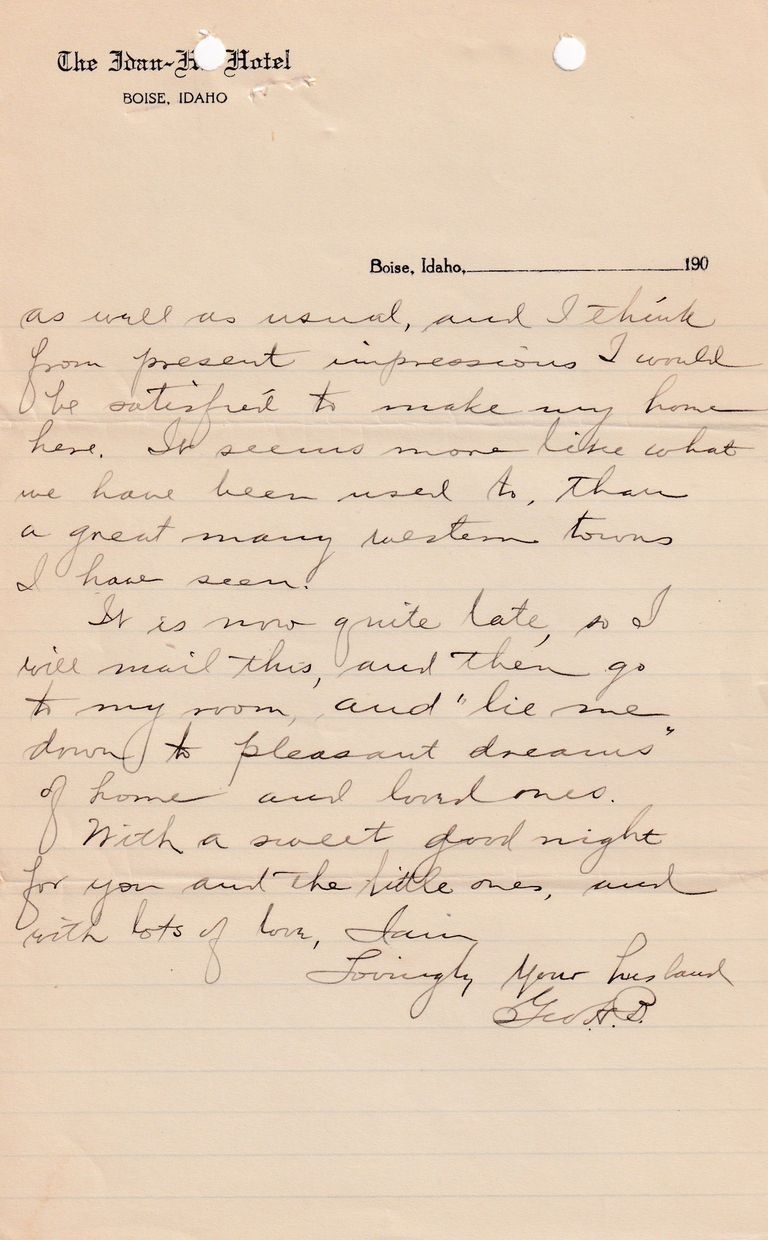 The Idan-H Hotel
BOISE, IDAHO
Boise, Idaho, 190
as well as usual, and I think
from present impressions I would
be satisfied to make my home
here. It seems more like what
we have been used to, than
a great many western towns
I have seen.
It is now quite late, so I
will mail this, and then go
to my room, and "lie me
down to pleasant dreams"
of home and loved ones.
With a sweet good night
for you and the little ones, and
with lots of love, I am
Lovingly your husband
Geo. A. B.